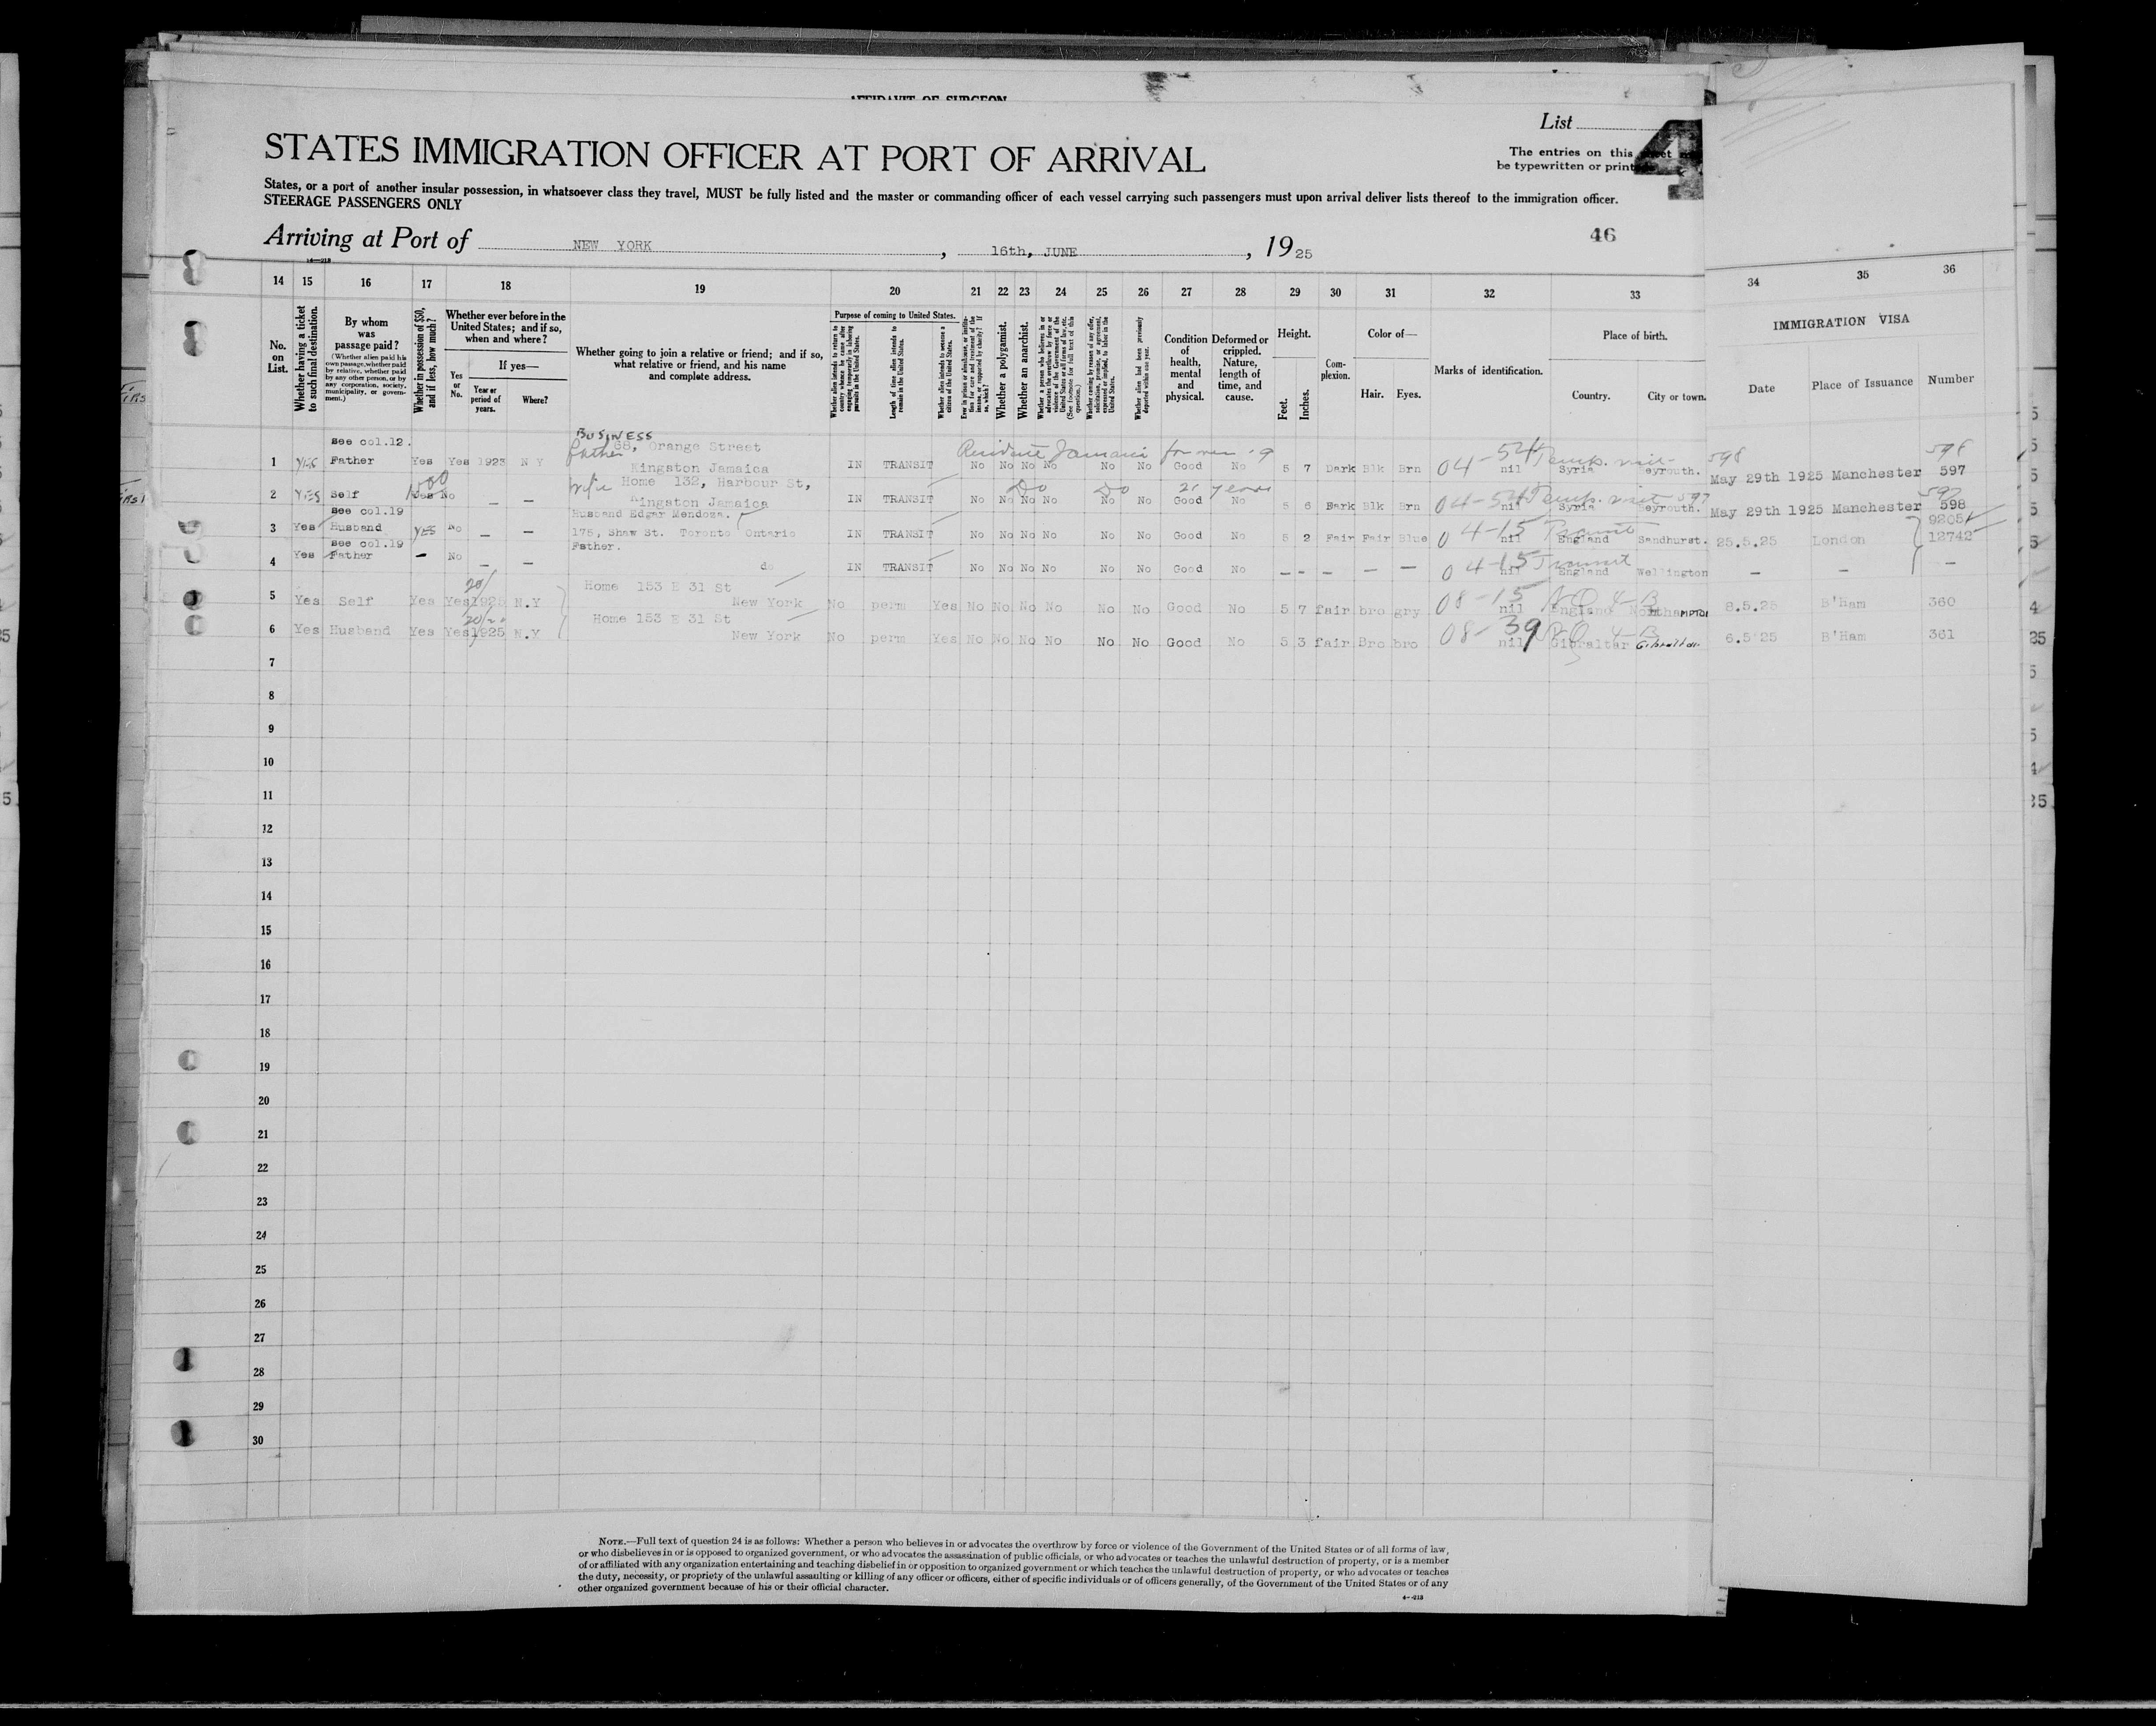 AFFIDAVIT OF SURGEON
STATES IMMIGRATION OFFICER AT PORT OF ARRIVAL
List 4
The entries on this sheet
be typewritten or print
States, or a port of another insular possession, in whatsoever class they travel, MUST be fully listed and the master or commanding officer of each vessel carrying such passengers must upon arrival deliver lists thereof to the immigration officer.
STEERAGE PASSENGERS ONLY
Arriving at Port of NEW YORK, 16th, JUNE, 1925
46
14 15 16 17 18 19 20 21 22 23 24 25 26 27 28 29 30 31 32 33 34 35 36
No. on List.
Whether having a ticket to such final destination.
By whom was passage paid?
(Whether alien paid his own passage, whether paid by relative, whether paid by any other person, or by any corporation, society, municipality, or government.)
Whether in possession of $50, and if less, how much?
Whether ever before in the United States; and if so, when and where?
Yes or No.
If yes—
Year or period of years.
Where?
Whether going to join a relative or friend; and if so, what relative or friend, and his name and complete address.
Purpose of coming to United States.
Whether alien intends to return to country whence he came after engaging temporarily in laboring pursuits in the United States.
Length of time alien intends to remain in the United States.
Whether alien intends to become a citizen of the United States.
Ever in prison or almshouse, or institution for care and treatment of the insane, or supported by charity? If so, which?
Whether a polygamist.
Whether an anarchist.
Whether a person who believes in or advocates the overthrow by force or violence of the Government of the United States or all forms of law, etc. (See footnote for full text of this question.)
Whether coming by reason of any offer, solicitation, promise, or agreement, expressed or implied, to labor in the United States.
Whether alien had been previously deported within one year.
Condition of health, mental and physical.
Deformed or crippled. Nature, length of time, and cause.
Height.
Feet. Inches.
Complexion.
Color of—
Hair. Eyes.
Marks of identification.
Place of birth.
Country. City or town.
IMMIGRATION VISA
Date Place of Issuance Number
see col.12. BUSINESS father 68, Orange Street Resident Jamaica for over 9 04-54 Temp. visit 598 598
1 YES Father Yes Yes 1923 N Y Kingston Jamaica IN TRANSIT No No No No No No Good No 5 7 Dark Blk Brn nil Syria Beyrouth. May 29th 1925 Manchester 597
1500 wife Home 132, Harbour St, Do Do 21 years 04-54 Temp. visit 597 597
2 YES Self Yes No — — Kingston Jamaica IN TRANSIT No No No No No No Good No 5 6 Dark Blk Brn nil Syria Beyrouth. May 29th 1925 Manchester 598
see col.19 Husband Edgar Mendoza. 04-15 Transit 92051
3 Yes Husband YES No — — 175, Shaw St. Toronto Ontario IN TRANSIT No No No No No No Good No 5 2 Fair Fair Blue nil England Sandhurst. 25.5.25 London 12742
see col.19 Father. 04-15 Transit
4 Yes Father — No — — do IN TRANSIT No No No No No No Good No — — — — — nil England Wellington — — —
20/ Home 153 E 31 St 08-15 NQ 4-B
5 Yes Self Yes Yes 1925 N.Y New York No perm Yes No No No No No No Good No 5 7 fair bro gry nil England Northampton 8.5.25 B'Ham 360
Home 153 E 31 St 08-39 NQ 4-B
6 Yes Husband Yes Yes 1925 N.Y New York No perm Yes No No No No No No Good No 5 3 fair Bro bro nil Gibraltar Gibraltar 6.5.25 B'Ham 361
7
8
9
10
11
12
13
14
15
16
17
18
19
20
21
22
23
24
25
26
27
28
29
30
NOTE.—Full text of question 24 is as follows: Whether a person who believes in or advocates the overthrow by force or violence of the Government of the United States or of all forms of law,
or who disbelieves in or is opposed to organized government, or who advocates the assassination of public officials, or who advocates or teaches the unlawful destruction of property, or is a member
of or affiliated with any organization entertaining and teaching disbelief in or opposition to organized government or which teaches the unlawful destruction of property, or who advocates or teaches
the duty, necessity, or propriety of the unlawful assaulting or killing of any officer or officers, either of specific individuals or of officers generally, of the Government of the United States or of any
other organized government because of his or their official character.